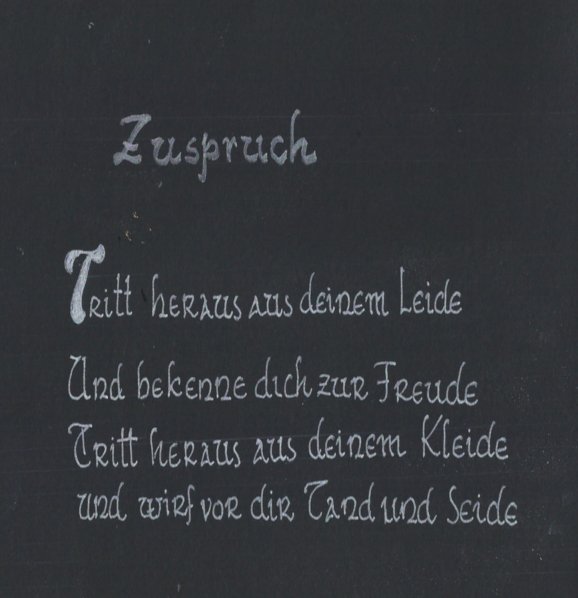 Zuspruch
Tritt heraus aus deinem Leide
Und bekenne dich zur Freude
Tritt heraus aus deinem Kleide
und wirf vor dir Tand und Seide